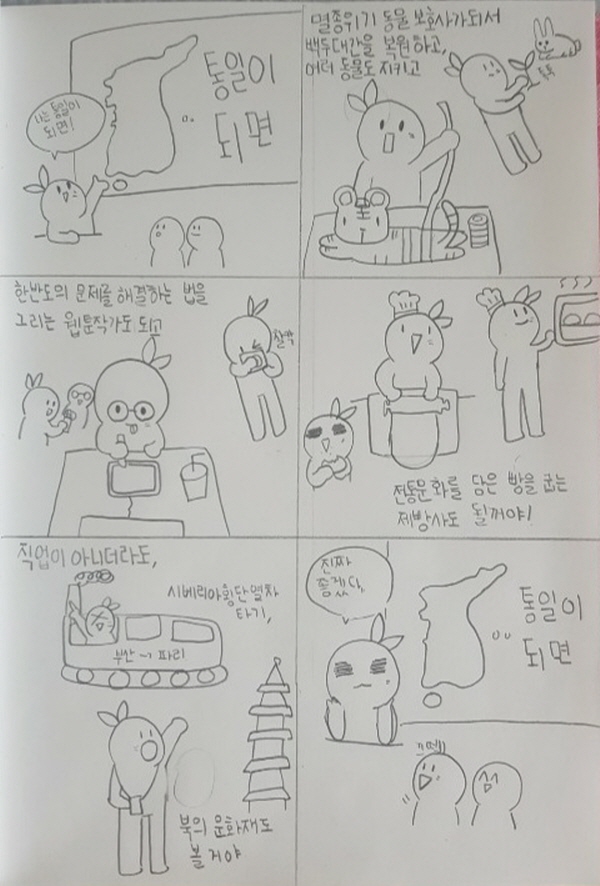 통일이
되면
나는 통일이
되면!
멸종위기 동물 보호사가되서
백두대간을 복원하고,
여러 동물도 지키고
톡톡
한반도의 문제를 해결하는 법을
그리는 웹툰작가도 되고
찰칵
전통문화를 담은 빵을 굽는
제빵사도 될꺼야!
직업이 아니더라도,
시베리아횡단열차
타기,
부산→파리
북의 문화재도
볼거야
진짜
좋겠다,
통일이
되면
끄떼!
섬